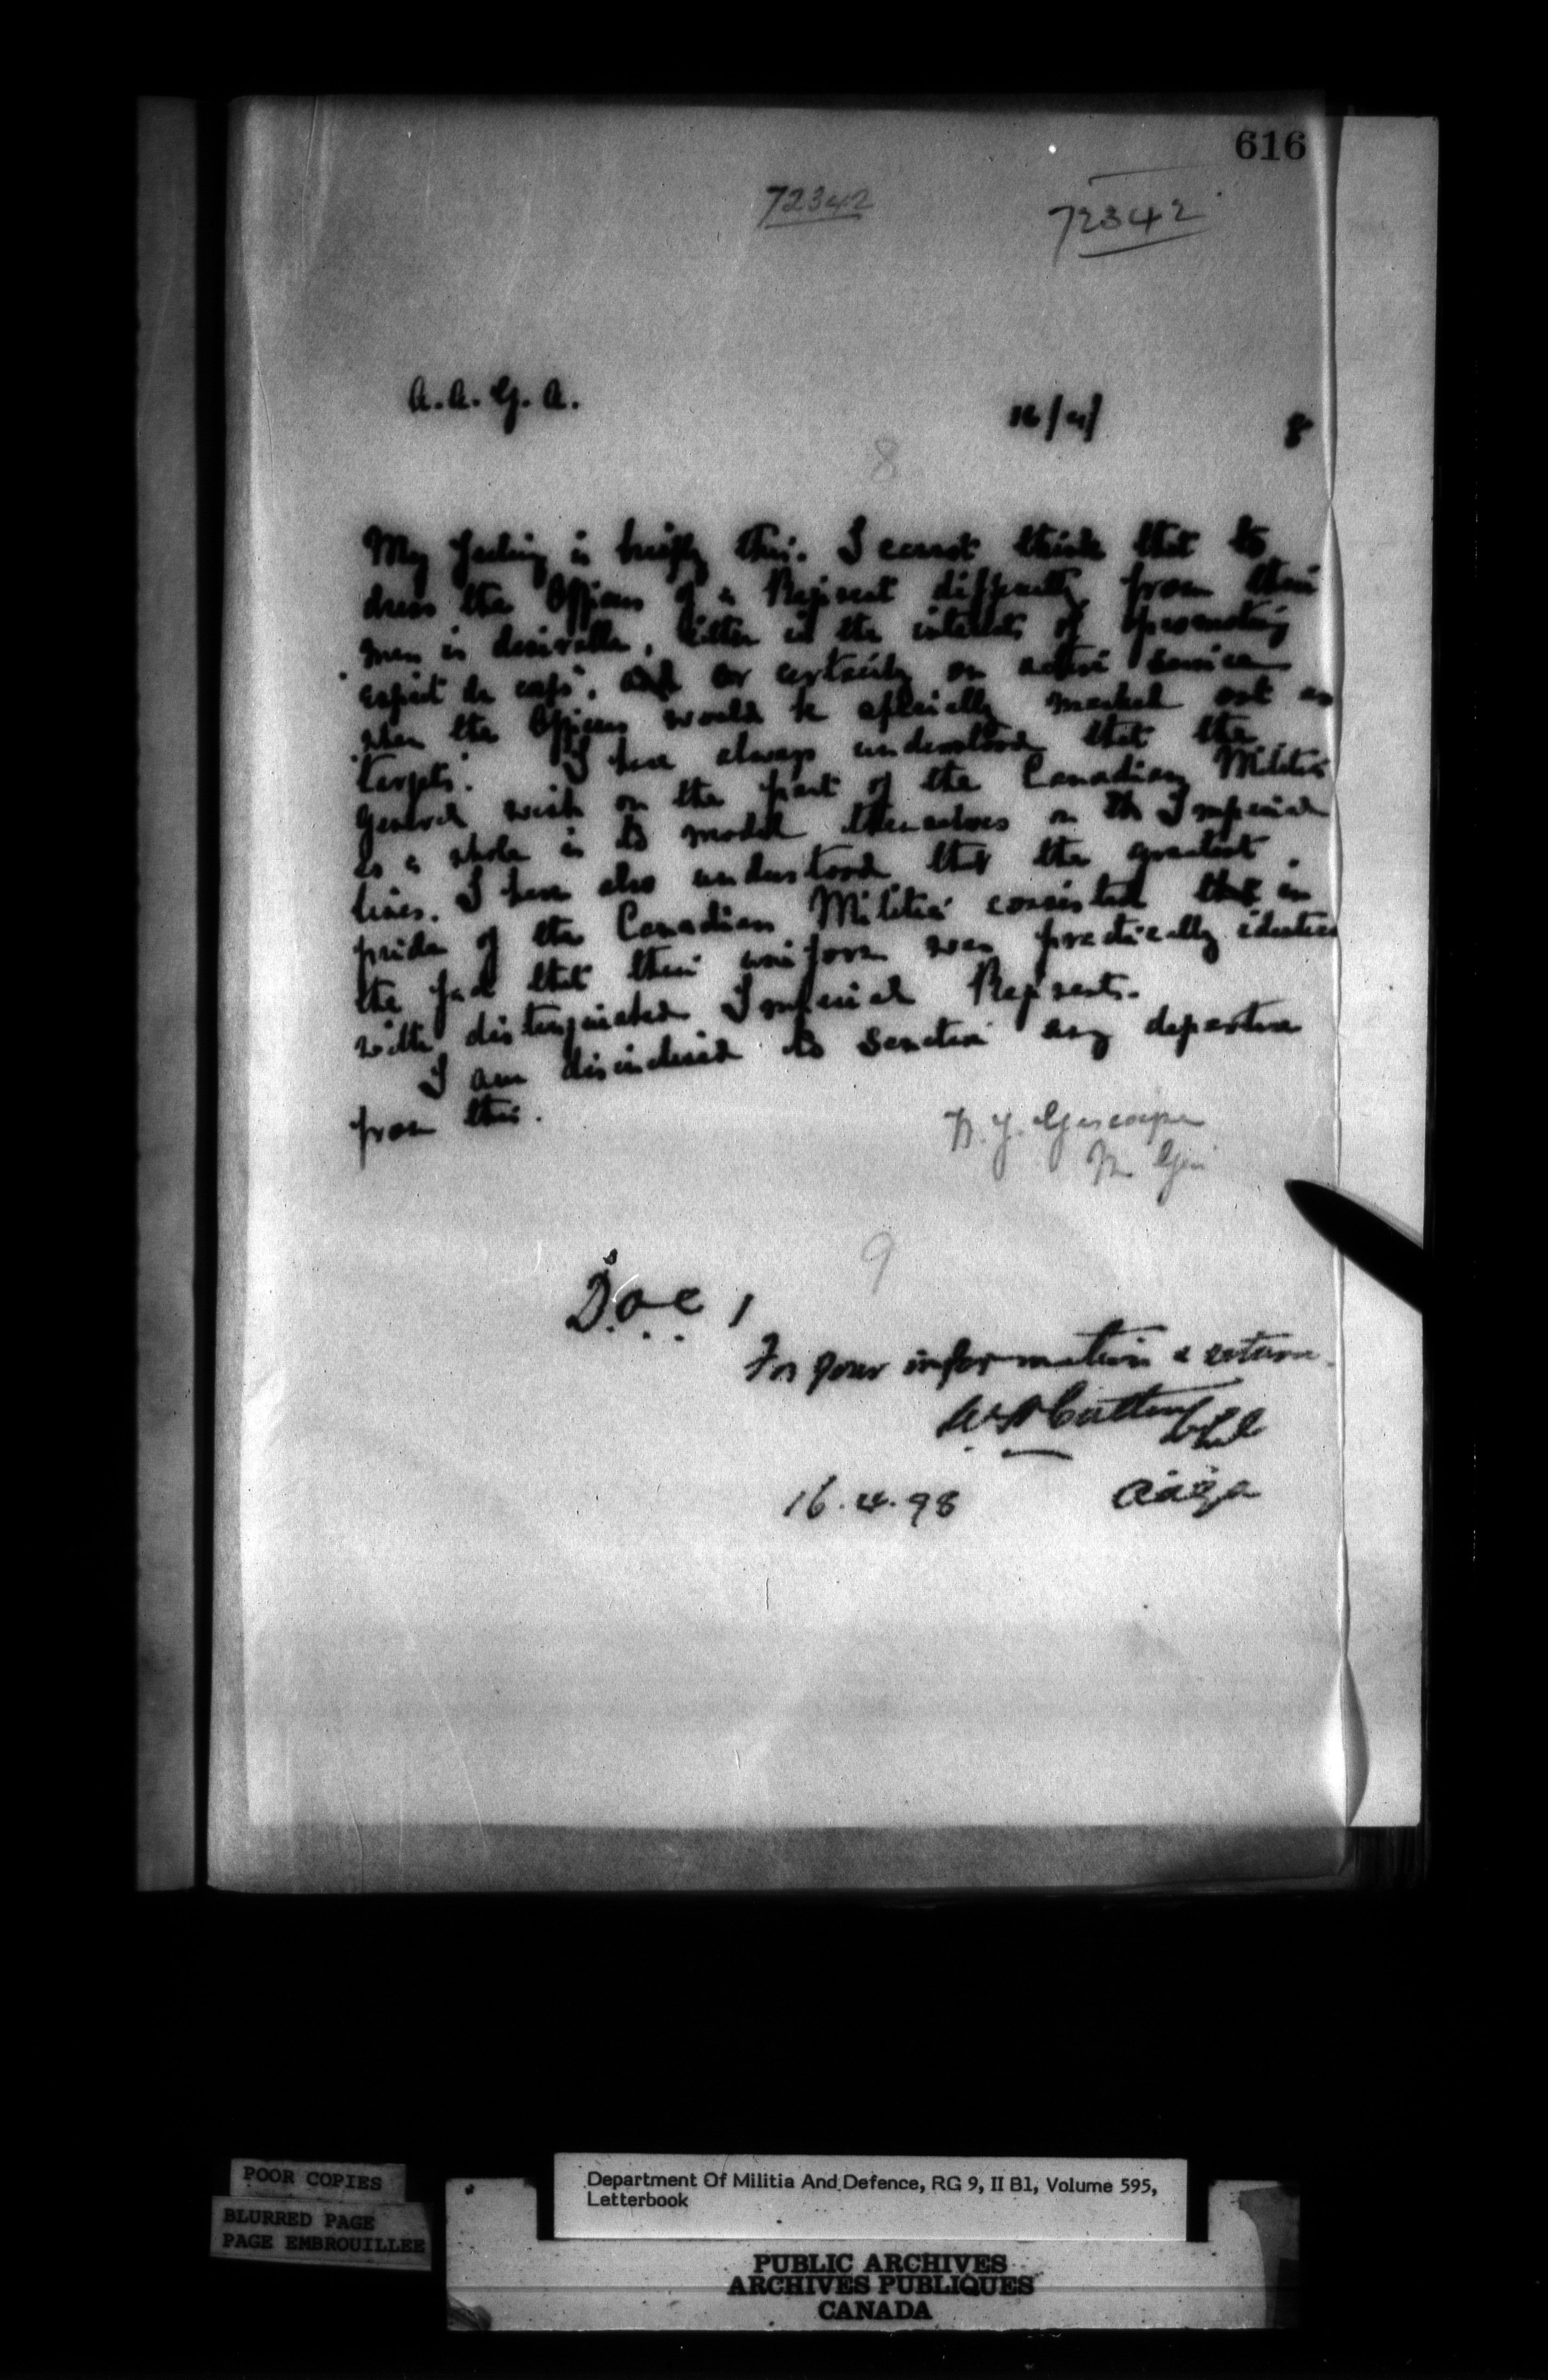 616
72342
72342
A. A. G. A.
16/4/ 8
8
My feeling is briefly this. I cannot think that to
dress the Officers of a Regiment differently from their
men is desirable, either in the interests of "promoting
"esprit de corps", or certainly on active service
when the Officers would be specially marked out as
"targets". I have always understood that the
general wish on the part of the Canadian Militia
as a whole is to model themselves on the Imperial
lines. I have also understood that the greatest
pride of the Canadian Militia consisted in
the fact that their uniform was practically identical
with distinguished Imperial Regiments.
I am disinclined to sanction any departure
from this.
W. J. Gascoigne
M. Gen
9
D.O.C. 1
For your information & return.
16.4.98 aaga
POOR COPIES
BLURRED PAGE
PAGE EMBROUILLEE
Department Of Militia And Defence, RG 9, II B1, Volume 595,
Letterbook
PUBLIC ARCHIVES
ARCHIVES PUBLIQUES
CANADA